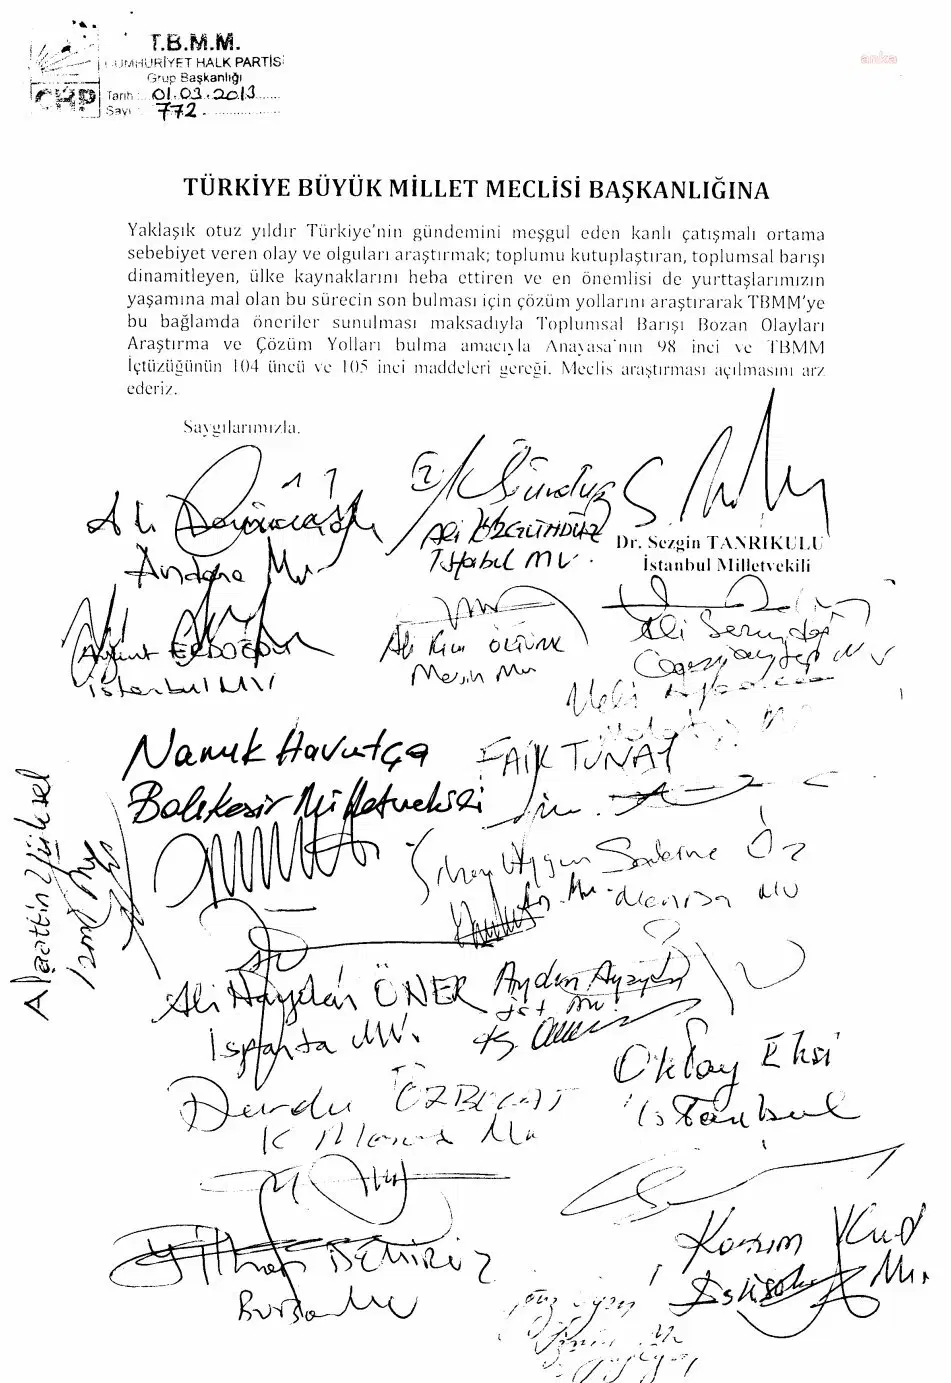 T.B.M.M.
CUMHURİYET HALK PARTİSİ
Grup Başkanlığı
CHP
Tarih : 01.03.2013
Sayı : 772
anka
TÜRKİYE BÜYÜK MİLLET MECLİSİ BAŞKANLIĞINA
Yaklaşık otuz yıldır Türkiye'nin gündemini meşgul eden kanlı çatışmalı ortama
sebebiyet veren olay ve olguları araştırmak; toplumu kutuplaştıran, toplumsal barışı
dinamitleyen, ülke kaynaklarını heba ettiren ve en önemlisi de yurttaşlarımızın
yaşamına mal olan bu sürecin son bulması için çözüm yollarını araştırarak TBMM'ye
bu bağlamda öneriler sunulması maksadıyla Toplumsal Barışı Bozan Olayları
Araştırma ve Çözüm Yolları bulma amacıyla Anayasa'nın 98 inci ve TBMM
İçtüzüğünün 104 üncü ve 105 inci maddeleri gereği. Meclis araştırması açılmasını arz
ederiz.
Saygılarımızla.
Ali
Ali ÖZGÜNDÜZ
İstanbul MV.
Dr. Sezgin TANRIKULU
İstanbul Milletvekili
Aykut ERDOĞDU
İstanbul MV
Ali Rıza ÖZTÜRK
Mersin Mv
Ali Serindağ
Gaziantep MV
Namık Havutça
Balıkesir Milletvekili
FAİK TUNAY
Alaattin Yüksel
İzmir Mv
Sakine Öz
Manisa MV
Ali Haydar ÖNER
Isparta MV.
Aydın Ayaydın
İst. Mv.
Durdu ÖZBOLAT
K Maraş Mv
Oktay Ekşi
İstanbul
İlhan DEMİRÖZ
Bursa MV
Kazım Kurt
Eskişehir Mv.